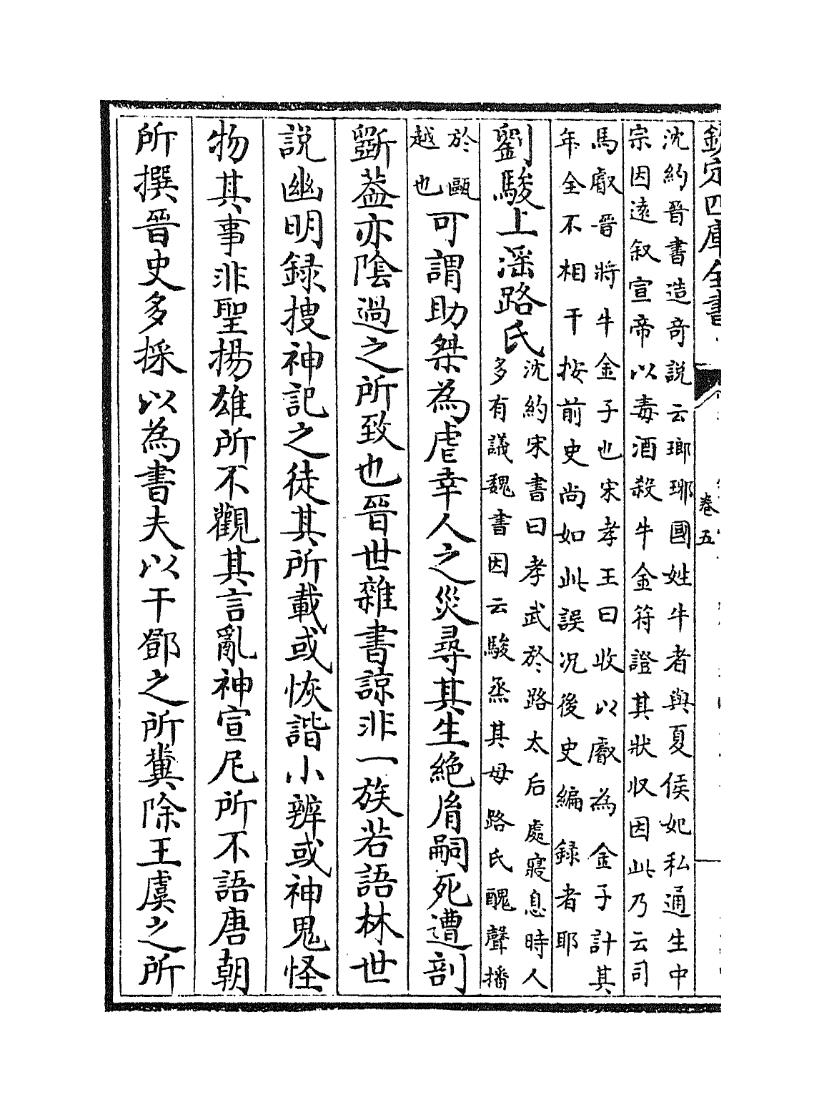 欽定四庫全書
卷五
沈約晉書造奇說云瑯琊國姓牛者與夏侯妃私通生中
宗因遠叙宣帝以毒酒殺牛金符證其狀収因此乃云司
馬叡晉將牛金子也宋孝王曰收以叡為金子計其
年全不相干按前史尚如此誤况後史編録者耶
劉駿上淫路氏沈約宋書曰孝武於路太后處寢息時人
多有議魏書因云駿烝其母路氏醜聲播
於甌
越也
可謂助桀為虐幸人之災尋其生絶胤嗣死遭剖
斵葢亦陰過之所致也晉世雜書諒非一族若語林世
説幽明録搜神記之徒其所載或恢諧小辨或神鬼怪
物其事非聖揚雄所不觀其言亂神宣尼所不語唐朝
所撰晉史多採以為書夫以干鄧之所糞除王虞之所